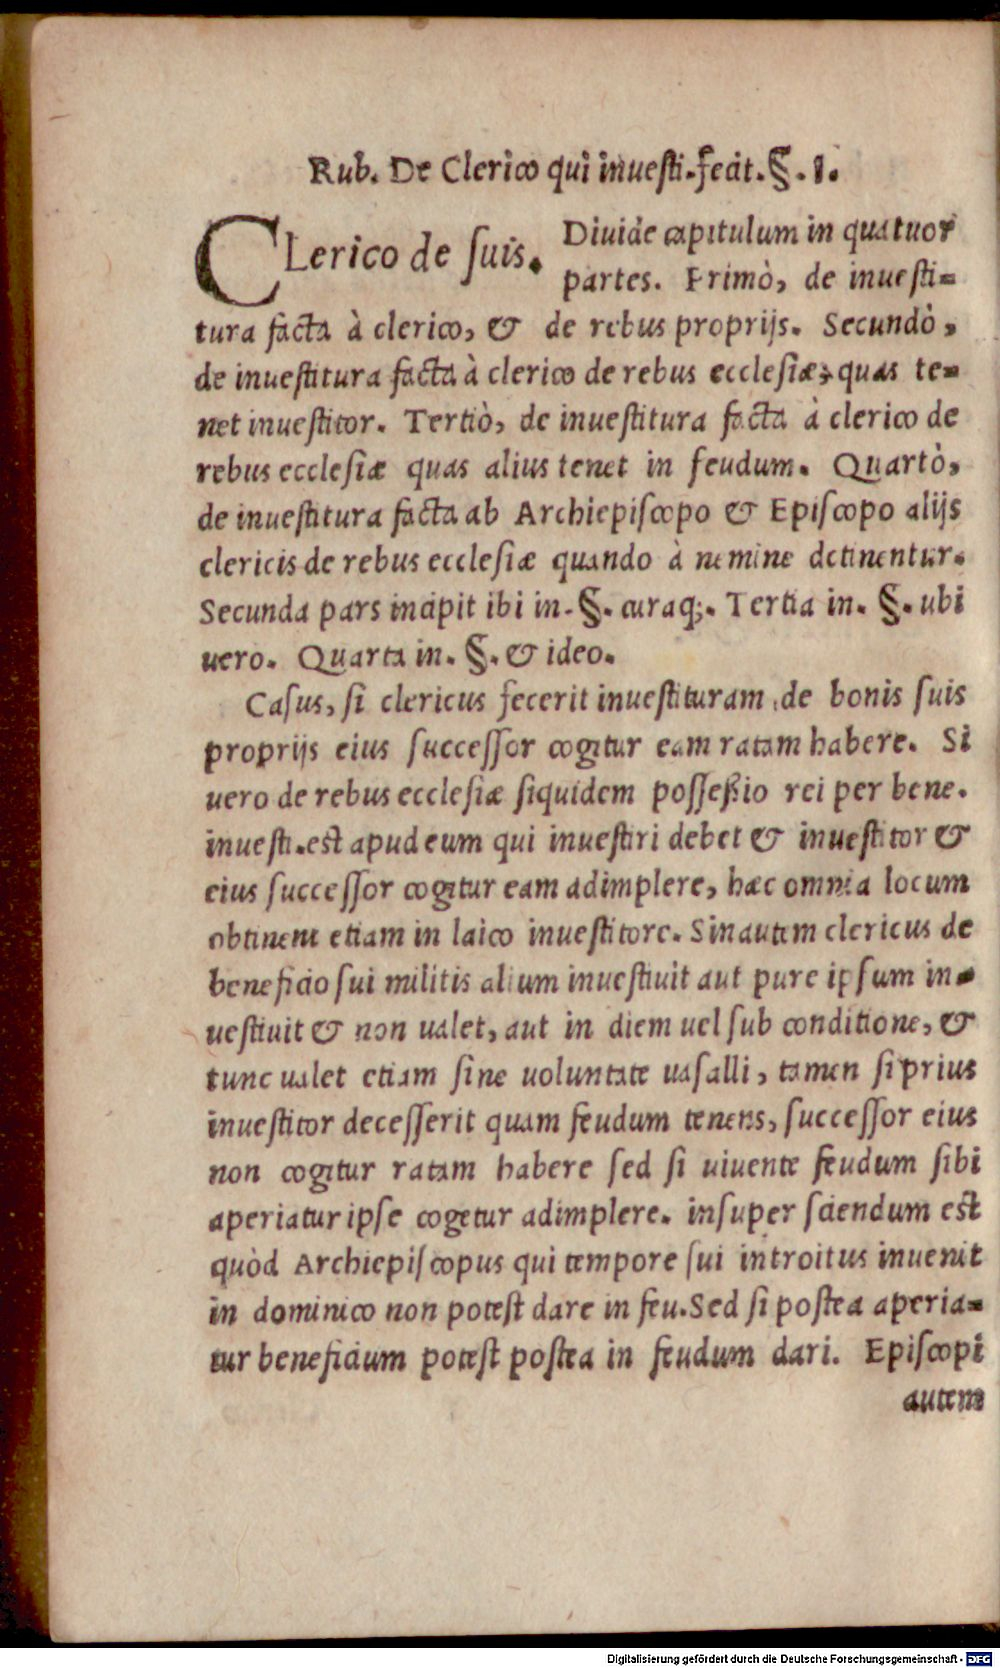 Rub. De Clerico qui inuesti.fecit.§.1.
CLerico de ſuis. Diuide capitulum in quatuor
partes. Primò, de inueſti-
tura facta à clerico, & de rebus proprijs. Secundò,
de inueſtitura facta à clerico de rebus eccleſiæ, quas te-
net inueſtitor. Tertiò, de inueſtitura facta à clerico de
rebus eccleſiæ quas alius tenet in feudum. Quartò,
de inueſtitura facta ab Archiepiſcopo & Epiſcopo alijs
clericis de rebus eccleſiæ quando à nemine detinentur.
Secunda pars incipit ibi in.§. curaq;. Tertia in. §. ubi
uero. Quarta in. §. & ideo.
Caſus, ſi clericus fecerit inueſtituram de bonis ſuis
proprijs eius ſucceſſor cogitur eam ratam habere. Si
uero de rebus eccleſiæ ſiquidem poſſeßio rei per bene.
inueſti.eſt apud eum qui inueſtiri debet & inueſtitor &
eius ſucceſſor cogitur eam adimplere, hæc omnia locum
obtinent etiam in laico inueſtitore. Sin autem clericus de
beneficio ſui militis alium inueſtiuit aut pure ipſum in-
ueſtiuit & non ualet, aut in diem uel ſub conditione, &
tunc ualet etiam ſine uoluntate uaſalli, tamen ſi prius
inueſtitor deceſſerit quam feudum tenens, ſucceſſor eius
non cogitur ratam habere ſed ſi uiuente feudum ſibi
aperiatur ipſe cogetur adimplere. inſuper ſciendum eſt
quòd Archiepiſcopus qui tempore ſui introitus inuenit
in dominico non poteſt dare in feu.Sed ſi poſtea aperia-
tur beneficium poteſt poſtea in feudum dari. Epiſcopi
autem
Digitalisierung gefördert durch die Deutsche Forschungsgemeinschaft - DFG